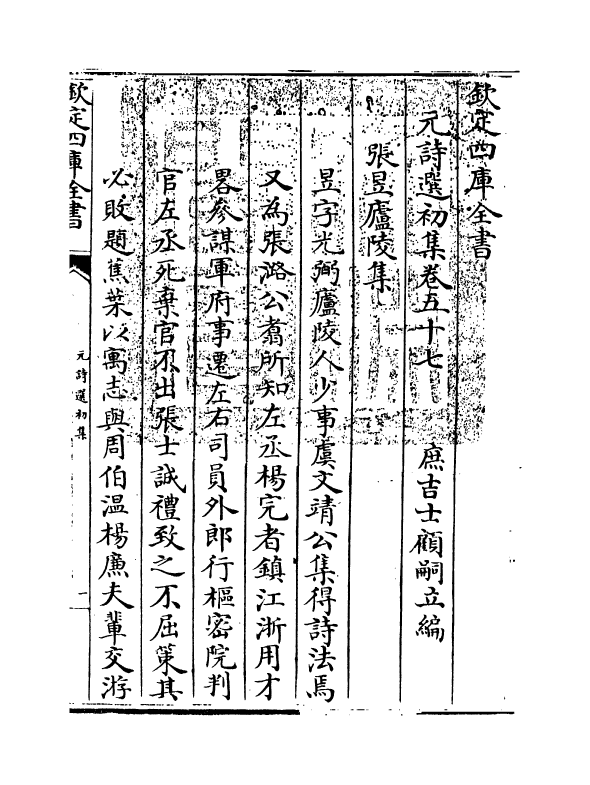 欽定四庫全書
元詩選初集卷五十七　庶吉士顧嗣立編
張昱廬陵集
昱字光弼廬陵人少事虞文靖公集得詩法焉
又為張潞公翥所知左丞楊完者鎮江浙用才
畧參謀軍府事遷左右司員外郎行樞密院判
官左丞死棄官不出張士誠禮致之不屈策其
必敗題蕉葉以寓志與周伯温楊廉夫輩交游
欽定四庫全書
元詩選初集
一